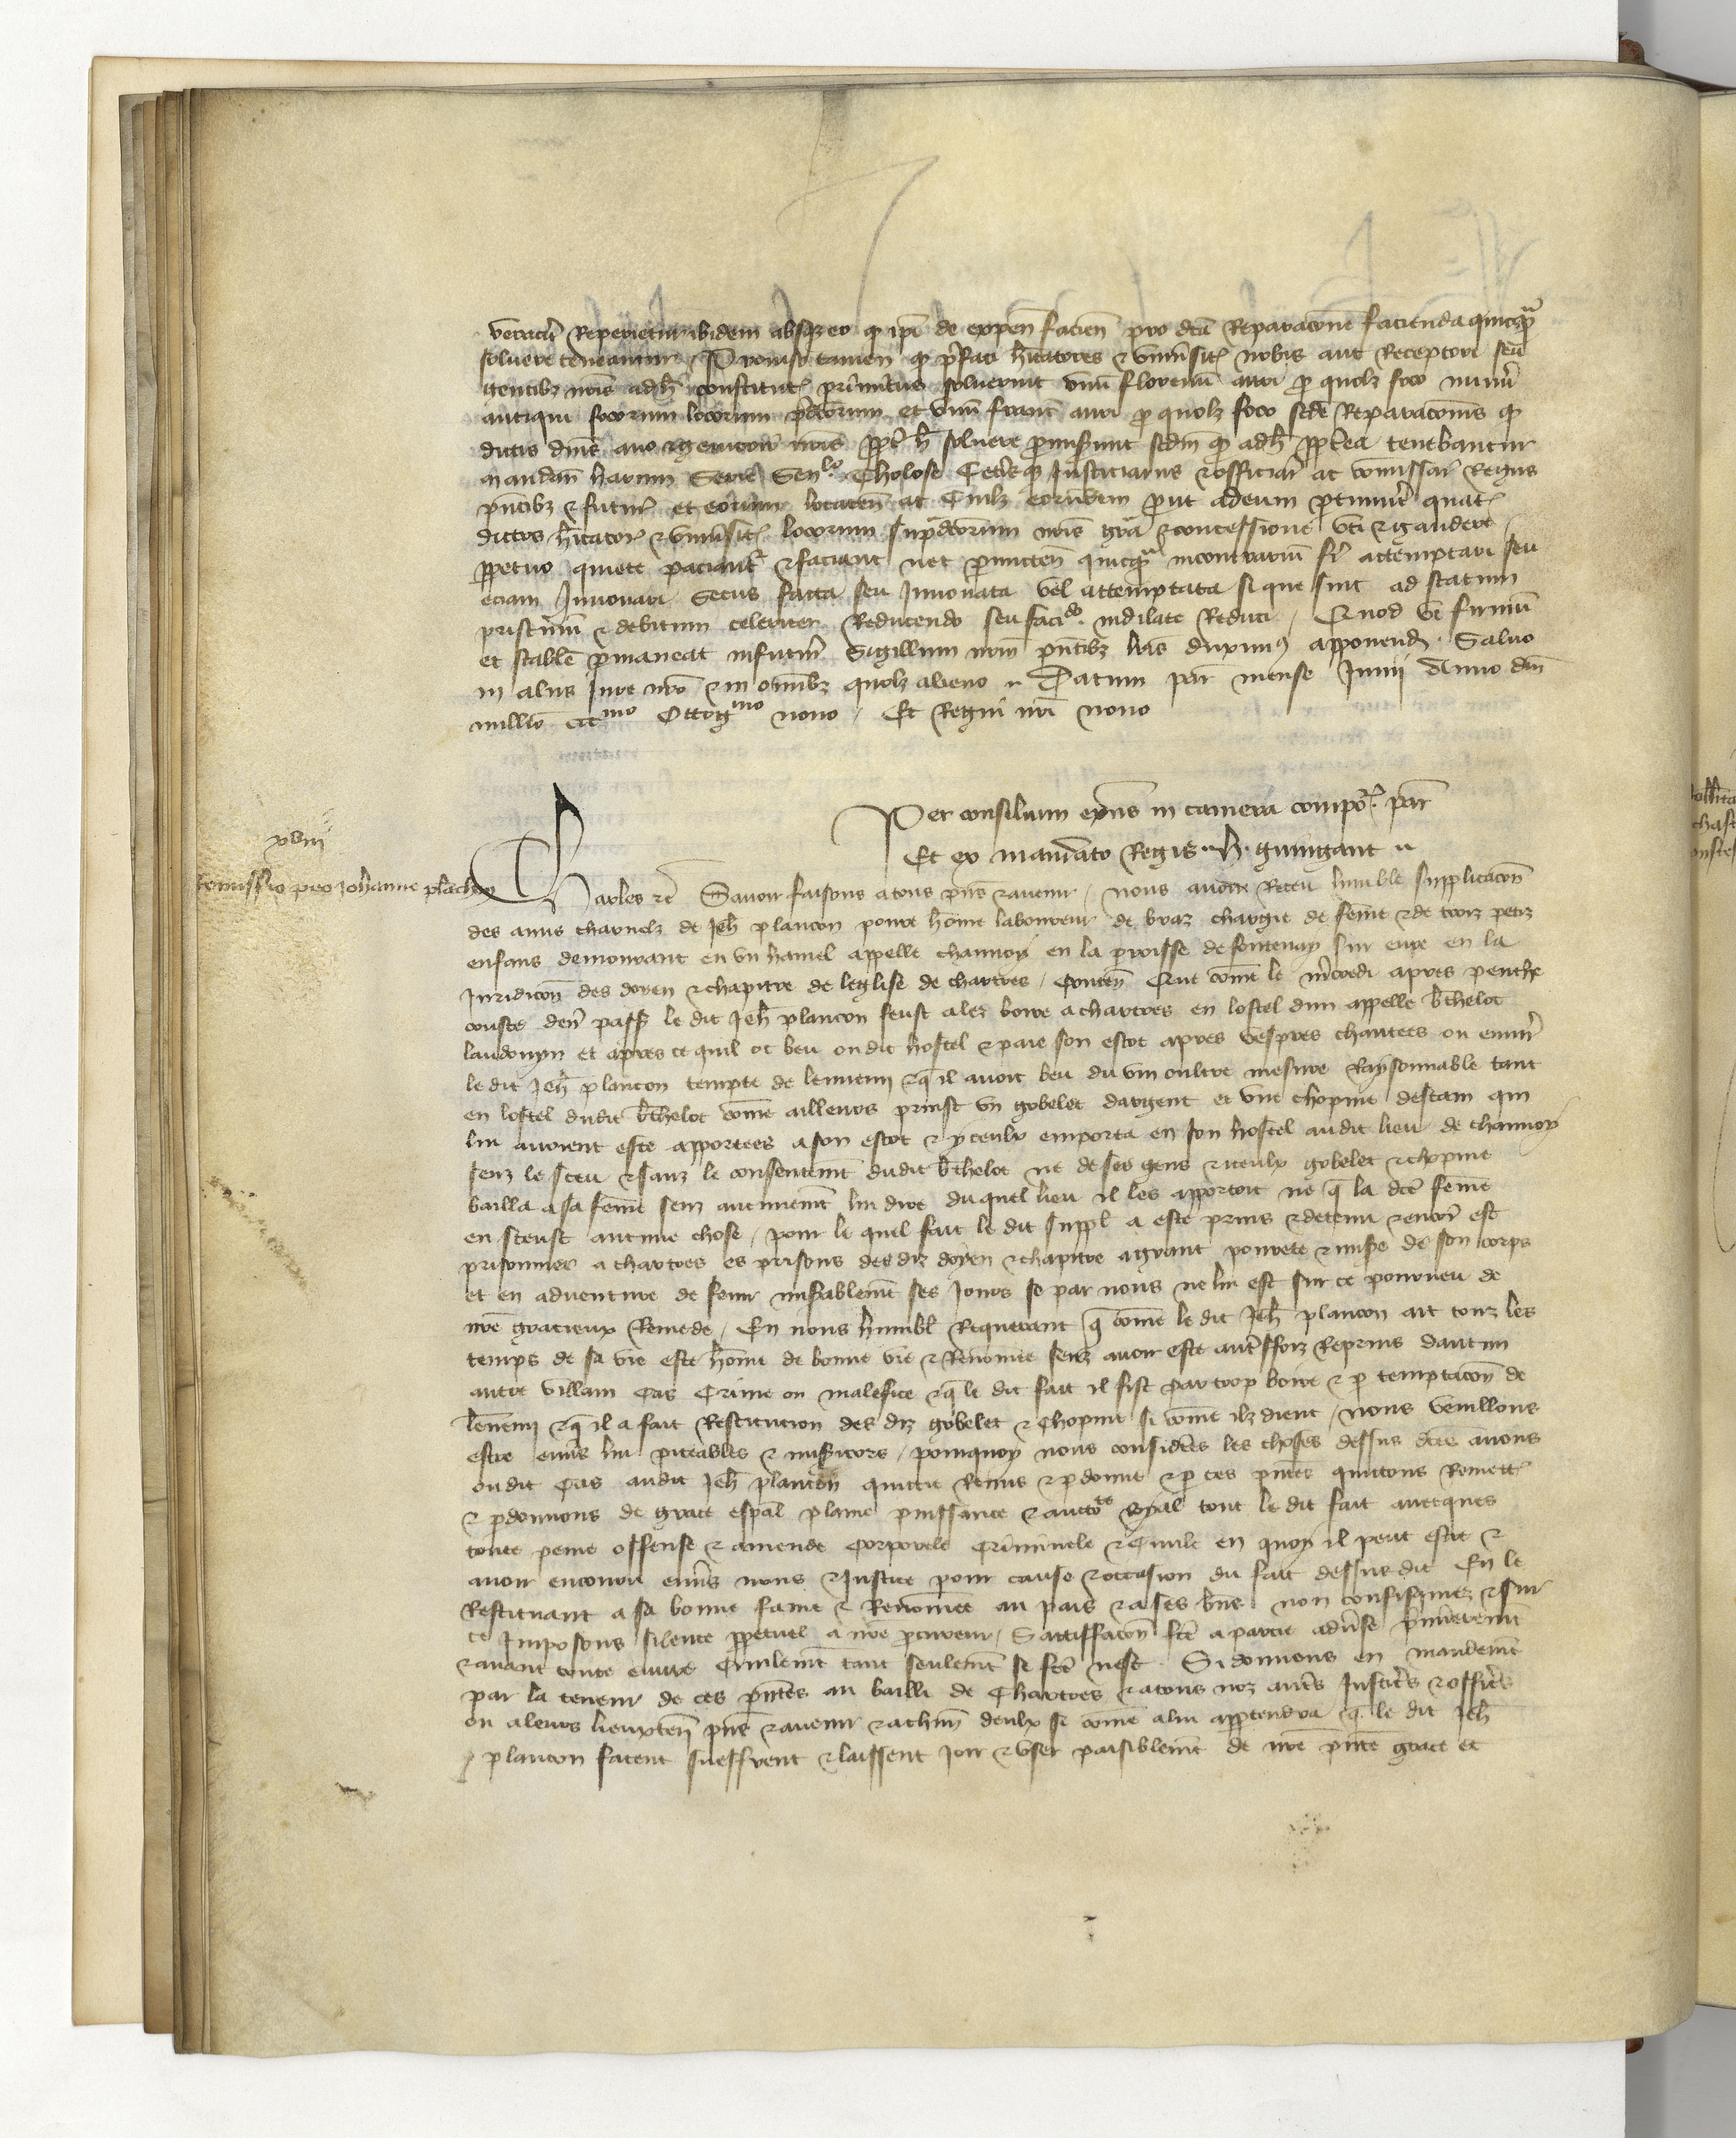 veraciter Reperietur ibidem absqz eo qz ipi de expen facien pro dca Reparacone facienda quicqz
solvere teneantur Proviso tamen qz prefati hitatores & universit nobis aut Receptori seu
gentibz nris adhec constitut primitus solverint unum florenum auri pro quolz foco numeri
antiqui focorum locorum predcorum et unum franc auri pro quolz foco sede Reparaconis qz
dictis dnis avo & genitori nris solvere promiserunt sedm qz adhec tenebantur
mandan harum serie Senlo Tholose Ceterisqz Justiciariis & officiar ac commissar Regiis
pntibz & futur et eorum locaten ac Cuilz eorumdem prout ad eum pertinuerit quat
dictos hitator & universit locorum supradcorum nris gra & concessione uti & gaudere
perpetuo quiete paciantur & faciant nec permitten quicqz in contrarium fieri attemptari seu
eciam Innovari Secus facta seu Innovata vel attemptata si que sint ad statum
pristinum & debitum celeriter Reducendo seu faciendo indilate Reduci / Quod ut firmum
et stabile permaneat in futurum Sigillum nrm pntibz lris duximus apponend . Salvo
in aliis Jure nro & in omibz quolz alieno Datum par mense Junii Anno dni
millmo cccmo Octogmo nono / Et Regni nri nono
Per consilium exns in camera compor par
Et ex mandato Regis H. guingant
xviii
Remissio pro Johanne plancon
Charles &c Savoir faisons a tous pns & avenir / nous avoir Receu humble supplicacon
des amis charnelz de Jeh plancon povre home laboureur de braz chargie de feme & de trois petiz
enfans demourant en un hamel appelle channoy en la paroisse de fontenay sur eure en la
Juridicon des doyen & chapitre de leglise de chartres / Conten Que come le mercredi apres penthe
couste dern passe le dit Jeh plancon feust alez boire a chartres en lostel dun appelle bthelot
laudouyn et apres ce quil ot beu oudit hostel & paie son escot apres vespres chantees ou environ
le dit Jeh plancon tempte de lennemi & q il avoit beu du vin oultre mesure Raysonnable tant
en lostel dudit bthelot come ailleurs prinst un gobelet dargent et une chopine destain qui
lui avoient este apportees a son escot & yceulx emporta en son hostel audit lieu de channoy
senz le sceu & sanz le consentemt dudit bthelot ne de ses gens & iceulx gobelet & chopine
bailla a sa feme senz autrement lui dire du quel lieu il les apportoit ne q la dce feme
en sceust aucune chose / pour le quel fait le dit suppl a este prins & detenu & encor est
prisonnier a chartres es prisons des diz doyen & chapitre a grant povrete & misere de son corps
et en adventure de fenir miserablemt ses Jours se par nous ne lui est sur ce pourveu de
nre gracieux Remede / En nous humbl Requerant q come le dit Jeh plancon ait touz les
temps de sa vie este home de bonne vie & Renomee senz avoir este autreffoiz Reprins daucun
autre villain Cas Crime ou malefice & q le dit fait il fist par trop boire & p temptacon de
lennemi & q il a fait Restitucion des diz gobelet & Chopine si come ilz dient / Nous veuillons
estre envers lui piteables & misericors / pourquoy nous considerees les choses dessus dces avons
oudit Cas audit Jeh plancon quicte Remis & pdonne & p ces pntes quictons Remett
& pdonnons de grace espal plaine puissance & auctote Royal tout le dit fait avecques
toute peine offense & amende Corporele Criminele & Civile en quoy il peut estre &
avoir encouru envers nous & Justice pour cause & occasion du fait dessus dit En le
Restituant a sa bonne fame & Renomee au pais & a ses biens non confisquez & sur
ce Imposons silence ppetuel a nre procureur / Sattiffacon fce a partie adverse premierement
& avant toute euvre Civilemt tant seulemt se fce nest . Si donnons en mandemt
par la teneur de ces pntes au bailli de Chartres & a tous noz autres Justiciers & officiers
ou a leurs lieuxten pns & avenir & a chun deulx si come a lui apptendra q le dit Jeh
plancon facent sueffrent & laissent Joir & user paisiblemt de nre pnte grace et